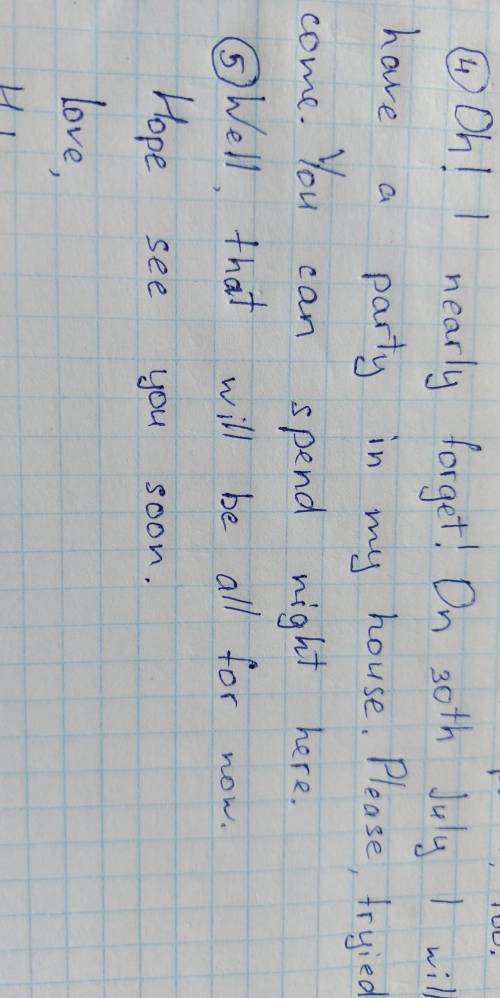 too.
④ Oh! I nearly forget! On 30th July I will
have a party in my house. Please, tryied
come. You can spend night here.
⑤ Well, that will be all for now.
Hope see you soon.
love,